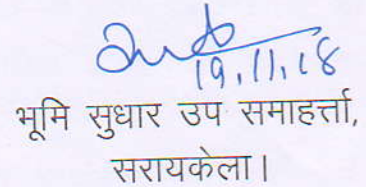 19.11.18
भूमि सुधार उप समाहर्त्ता,
सरायकेला।